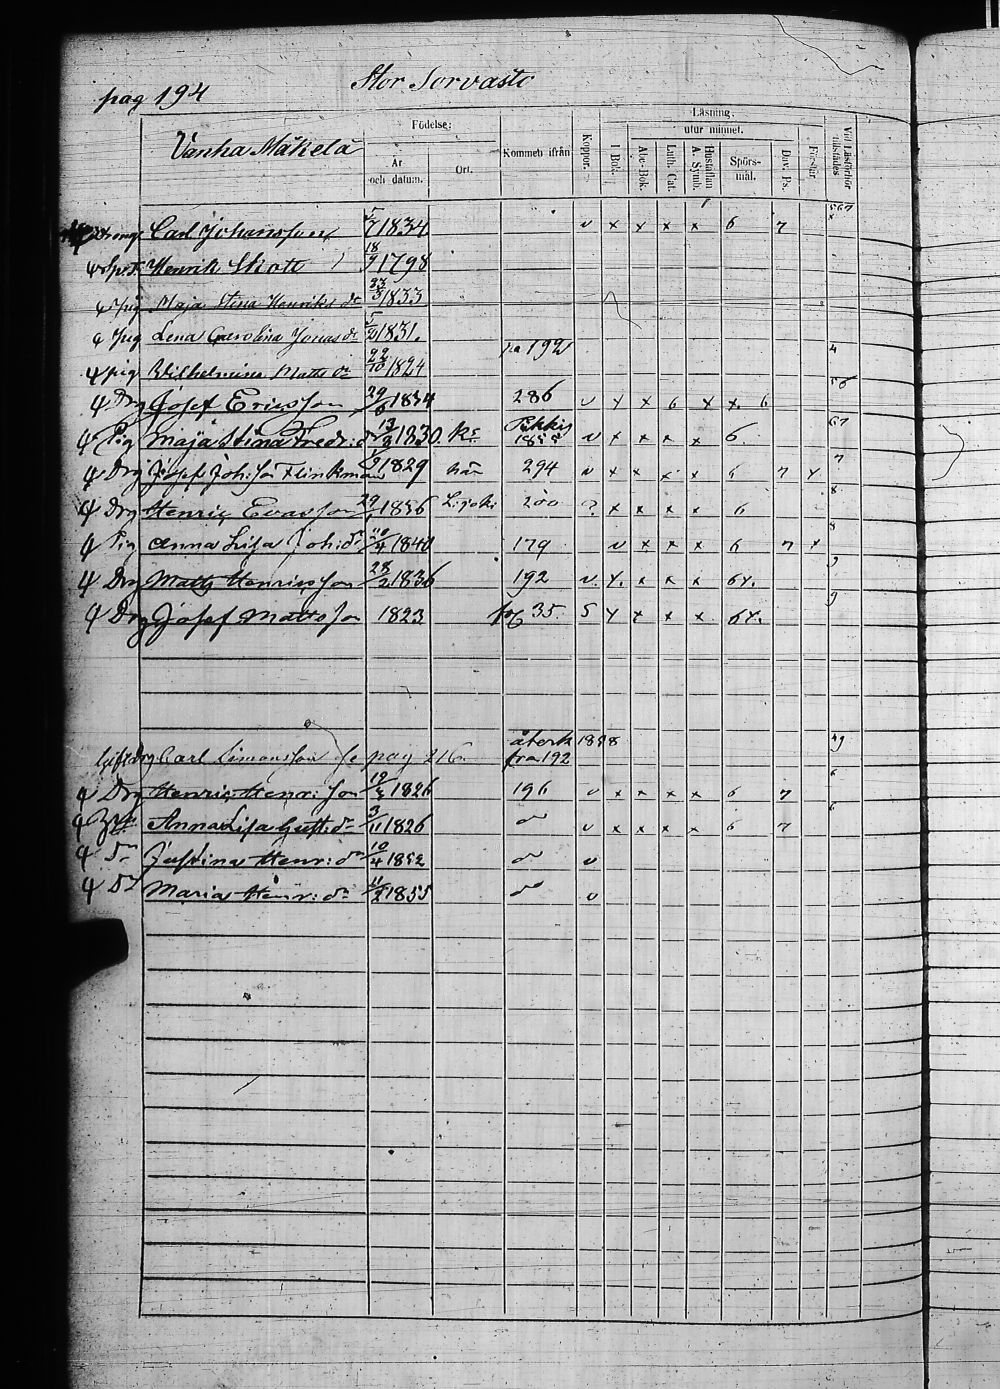 pag 194 Stor Sorvasto
Vanha Mäkelä Födelse: År och datum. Ort. Kommen ifrån Koppor. Läsning. utur minnet. I Bok. Abc-Bok. Luth. Cat. Hustaflan A. Symb. Spörs-mål. Dav. Ps. Förstår. Vid Läsförhör tillstädes
Carl Johansson 5/7 1834 v x x x x 6 7 567 x
Henrik Skott 18/9 1798
pig Maja Stina Henriks dr 23/3 1833
pig Lena Carolina Jonas dr 5/2 1831.
pig Wilhelmina Matts dr 22/10 1824 192 4
Drg Josef Ericsson 29/6 1834 286 v x x 6 x x. 6 56
Pig Maja Stina Fredr: dr 13/9 1830. 1855 v x x x x 6. 67
Drg Josef Joh:son Flinkman 1829 294 v x x x x 6 7 x 7
Drg Henric Evasson 29/1 1836 200 ? x x x x 6 8
Pig Anna Lisa Joh:dr 1840 179 v x x x 6 7 x 8
Drg Matts Henricsson 28/2 1836 192 v. x. x x x 6x. 9
Drg Josef Mattsson 1823 35. 5 x x x x 6x. 9
Carl Simonsson se pag 216 återk 1858 fra 192 49
Drg Henric Henr: son 1826 196 v x x x x 6 7 6
Anna Lisa Gust: dr 3/11 1826 do v x x x x 6 7 6
Dr Justina Henr: dr 10/4 1852 do v
Dr Maria Henr: dr 11/2 1855 do v